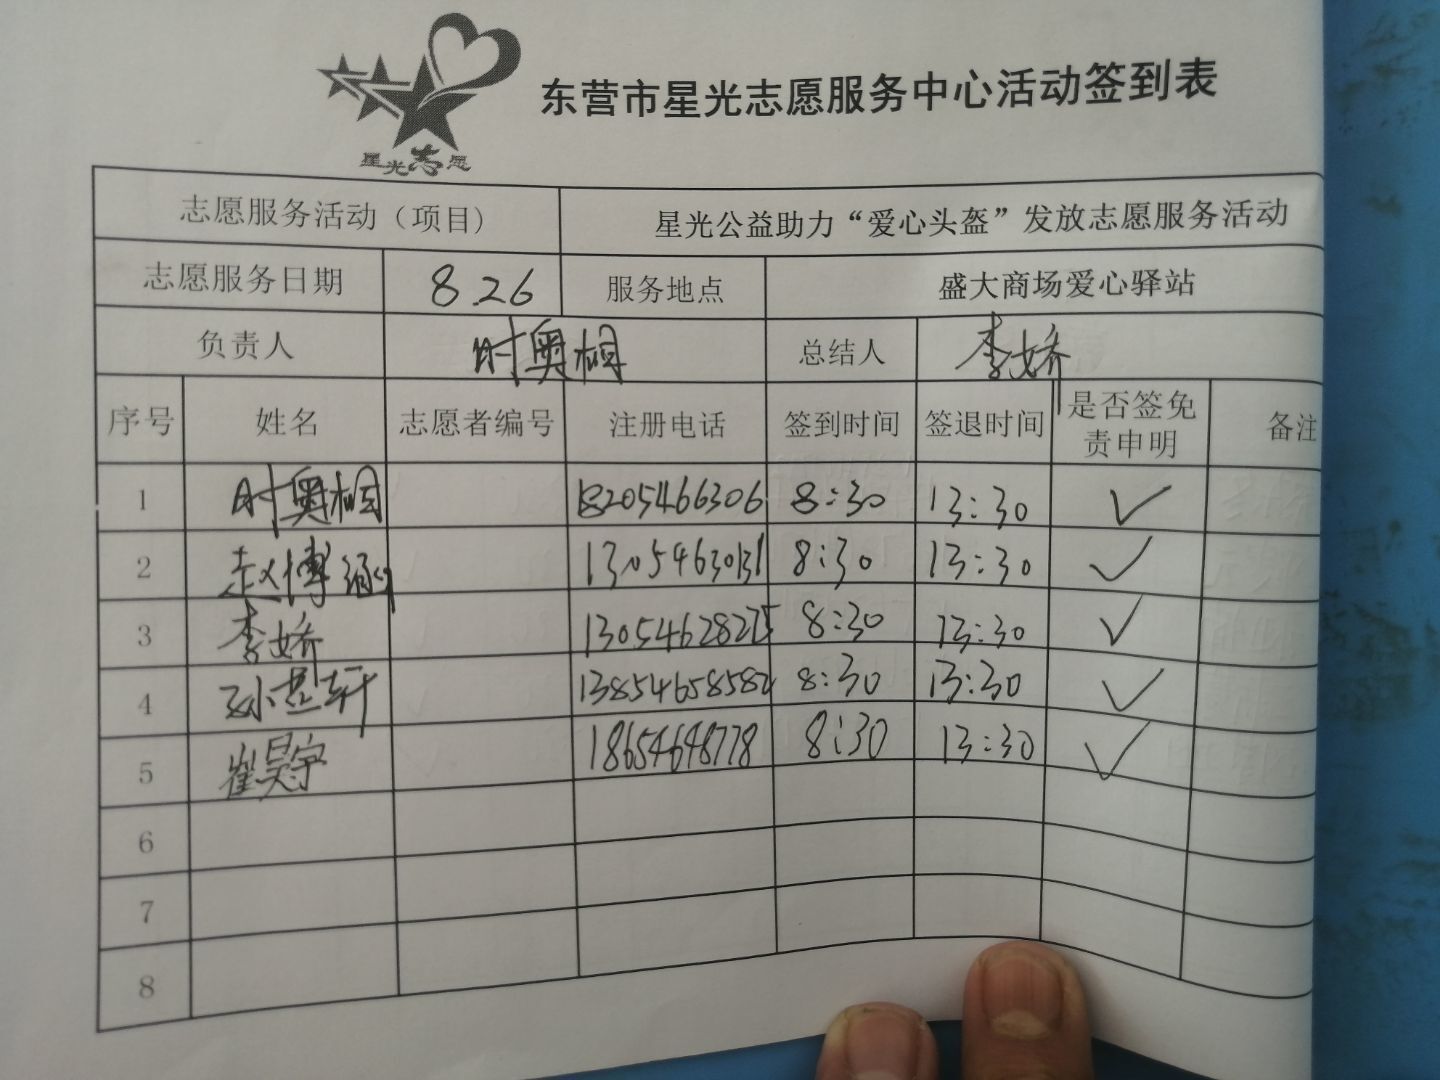 星光志愿
东营市星光志愿服务中心活动签到表
志愿服务活动（项目） 星光公益助力“爱心头盔”发放志愿服务活动
志愿服务日期 8.26 服务地点 盛大商场爱心驿站
负责人 时奥桐 总结人 李娇
序号 姓名 志愿者编号 注册电话 签到时间 签退时间 是否签免责申明 备注
1 时奥桐 18205466306 8:30 13:30 ✓
2 赵博涵 13054630131 8:30 13:30 ✓
3 李娇 13054628275 8:30 13:30 ✓
4 孙 轩 13854658582 8:30 13:30 ✓
5 崔昊宇 18654648778 8:30 13:30 ✓
6
7
8